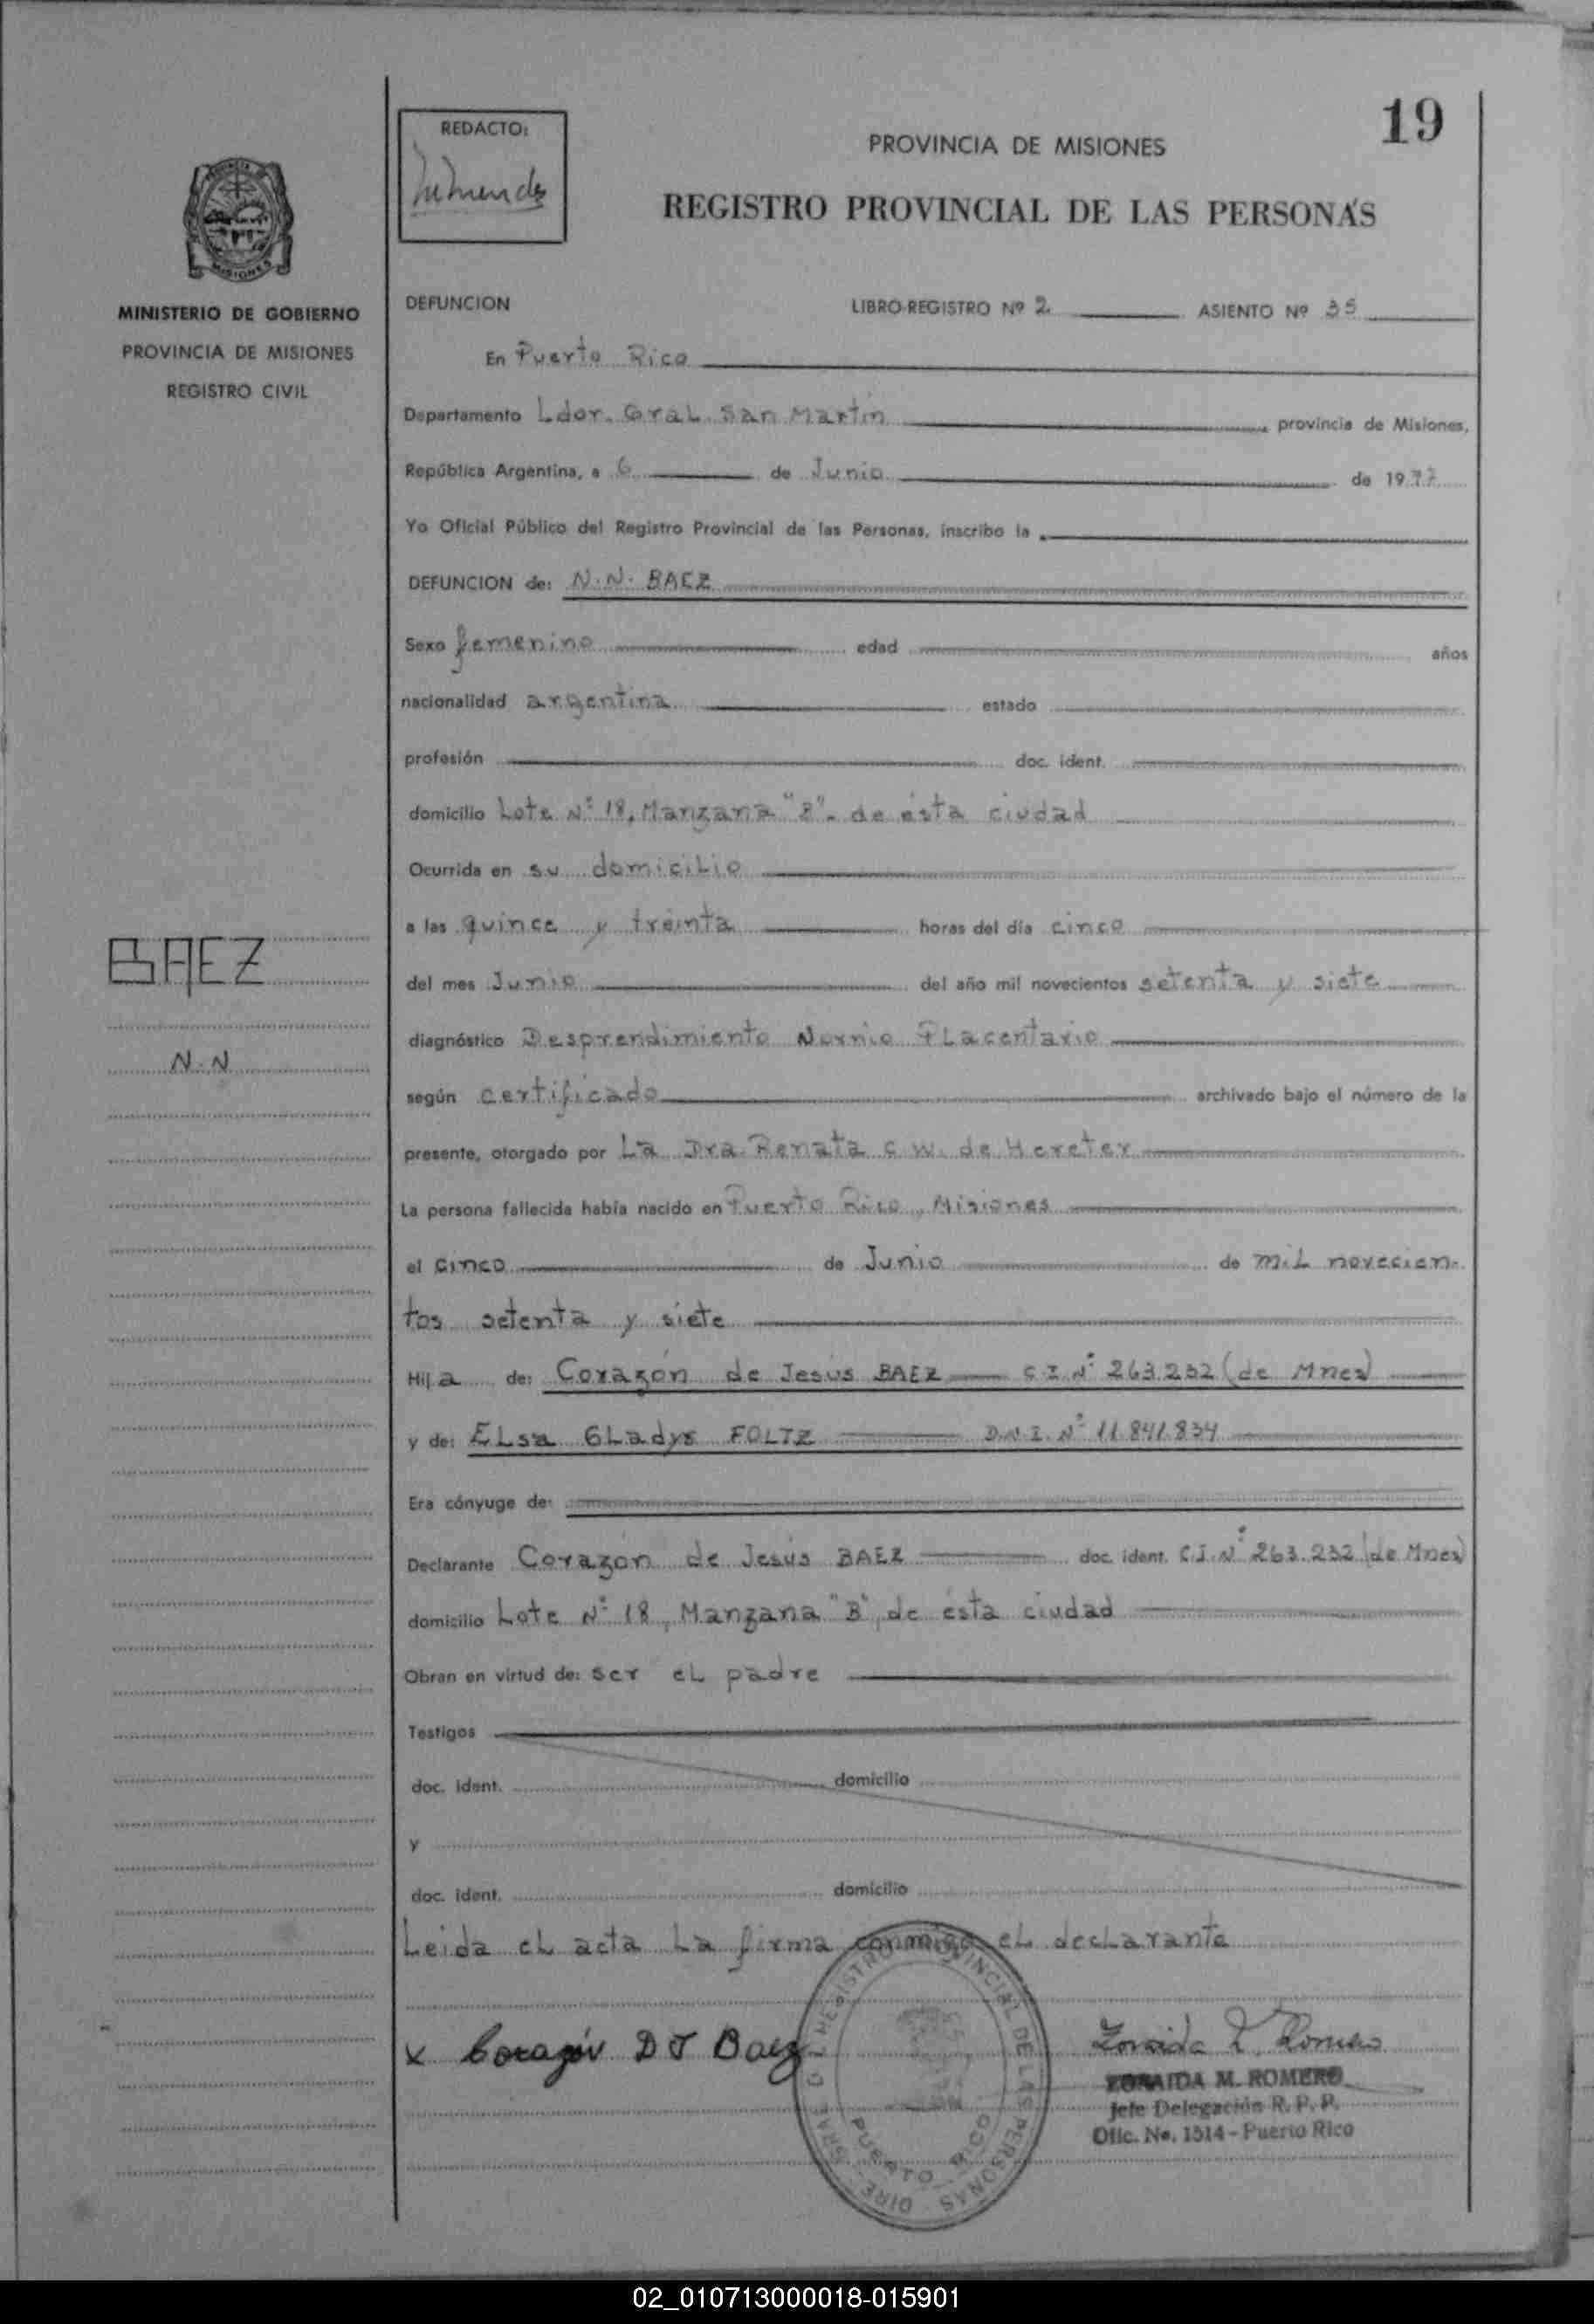 19
REDACTO:
PROVINCIA DE MISIONES
REGISTRO PROVINCIAL DE LAS PERSONAS
MISIONES
MINISTERIO DE GOBIERNO
PROVINCIA DE MISIONES
REGISTRO CIVIL
DEFUNCION LIBRO-REGISTRO Nº 2 ASIENTO Nº 35
En Puerto Rico
Departamento Ldor. GraL. San Martín provincia de Misiones,
República Argentina, a 6 de Junio de 1977
Yo Oficial Público del Registro Provincial de las Personas, inscribo la
DEFUNCION de: N.N. BAEZ
Sexo femenino edad años
nacionalidad argentina estado
profesión doc. ident.
domicilio Lote Nº 18, Manzana "B"- de ésta ciudad
Ocurrida en su domiciLio
a las quince y treinta horas del día cinco
del mes Junio del año mil novecientos setenta y siete
diagnóstico Desprendimiento PLacentario
según certificado archivado bajo el número de la
presente, otorgado por La Dra Renata C. W. de Hereter
La persona fallecida había nacido en Puerto Rico, Misiones
el cinco de Junio de miL novecien-
tos setenta y siete
Hija de: Corazón de Jesús BAEZ C.I. Nº 263.232 (de Mnes)
y de: ELsa GLadys FOLTZ D.N.I. Nº 11.841.834
Era cónyuge de:
Declarante Corazón de Jesús BAEZ doc. ident. C.I. Nº 263.232 (de Mnes)
domicilio Lote Nº 18, Manzana "B", de ésta ciudad
Obran en virtud de: ser eL padre
Testigos
doc. ident. domicilio
y
doc. ident. domicilio
Leida eL acta La firma conmigo eL declarante
x Corazón D J Baez
ZORAIDA M. ROMERO
Jefe Delegación R. P. P.
Ofic. No. 1514 - Puerto Rico
PUERTO RICO
BAEZ
N.N
02_010713000018-015901